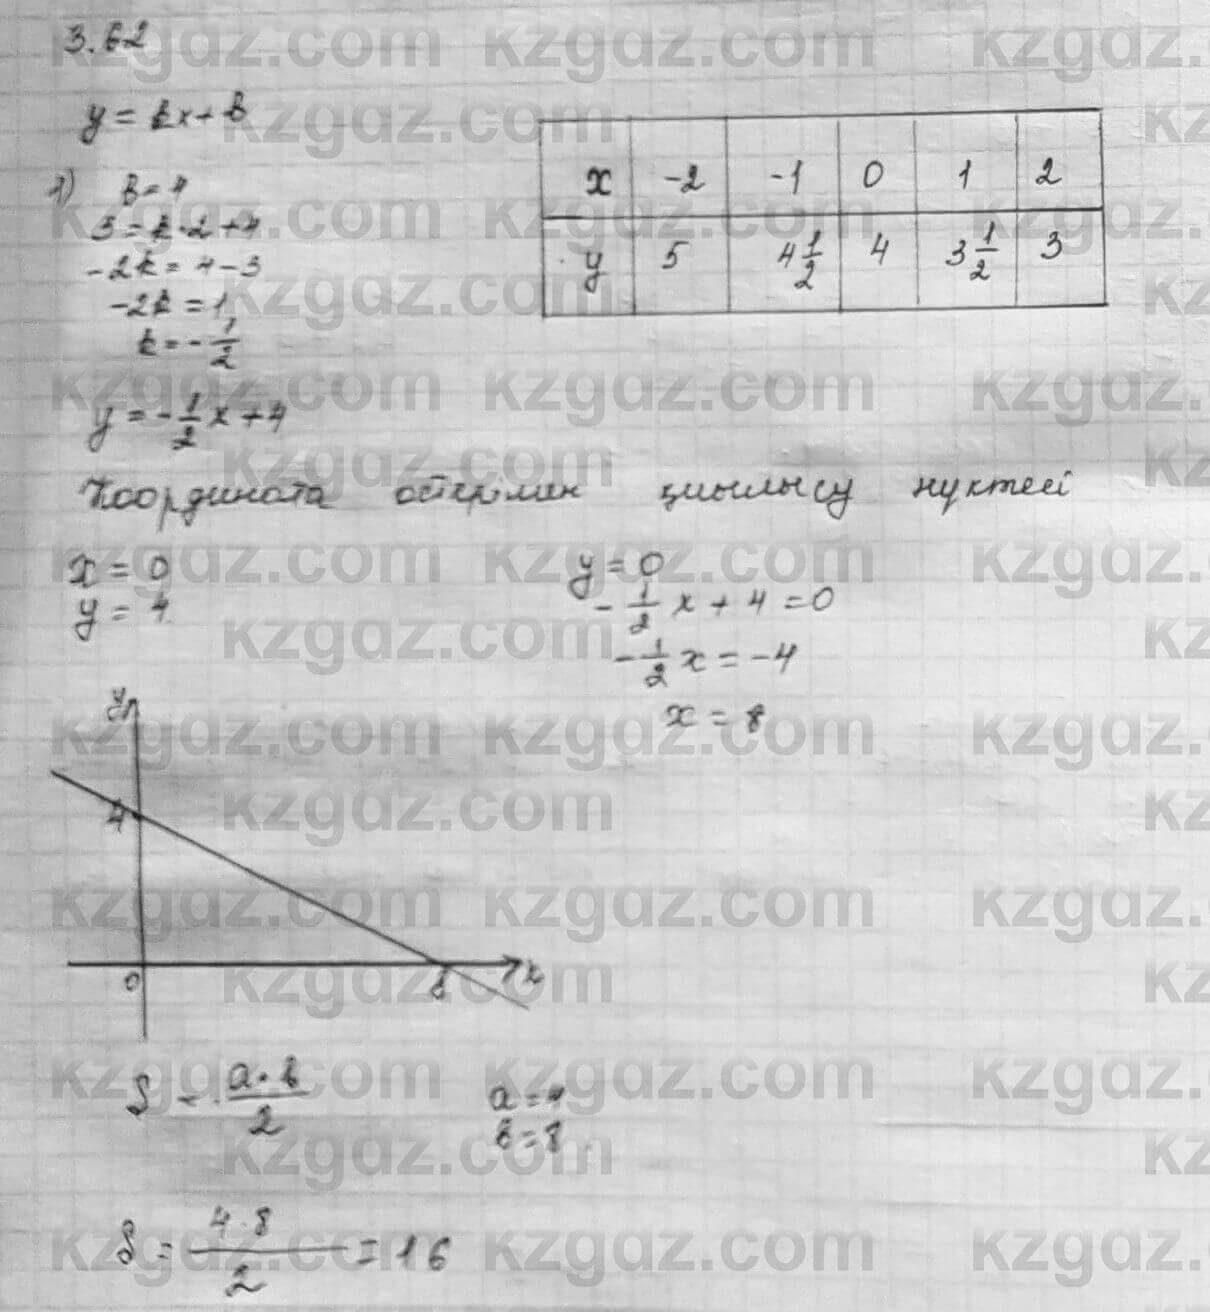 3.62
y = kx + b
1) b = 4
3 = k · 2 + 4
-2k = 4 - 3
-2k = 1
k = - 1/2
y = - 1/2 x + 4
x -2 -1 0 1 2
y 5 4 1/2 4 3 1/2 3
Координата осьтермен қиылысу нүктесі
x = 0
y = 4
y = 0
- 1/2 x + 4 = 0
- 1/2 x = -4
x = 8
y
4
0 8 x
S = a · b / 2
a = 4
b = 8
S = 4 · 8 / 2 = 16
kzgaz.com